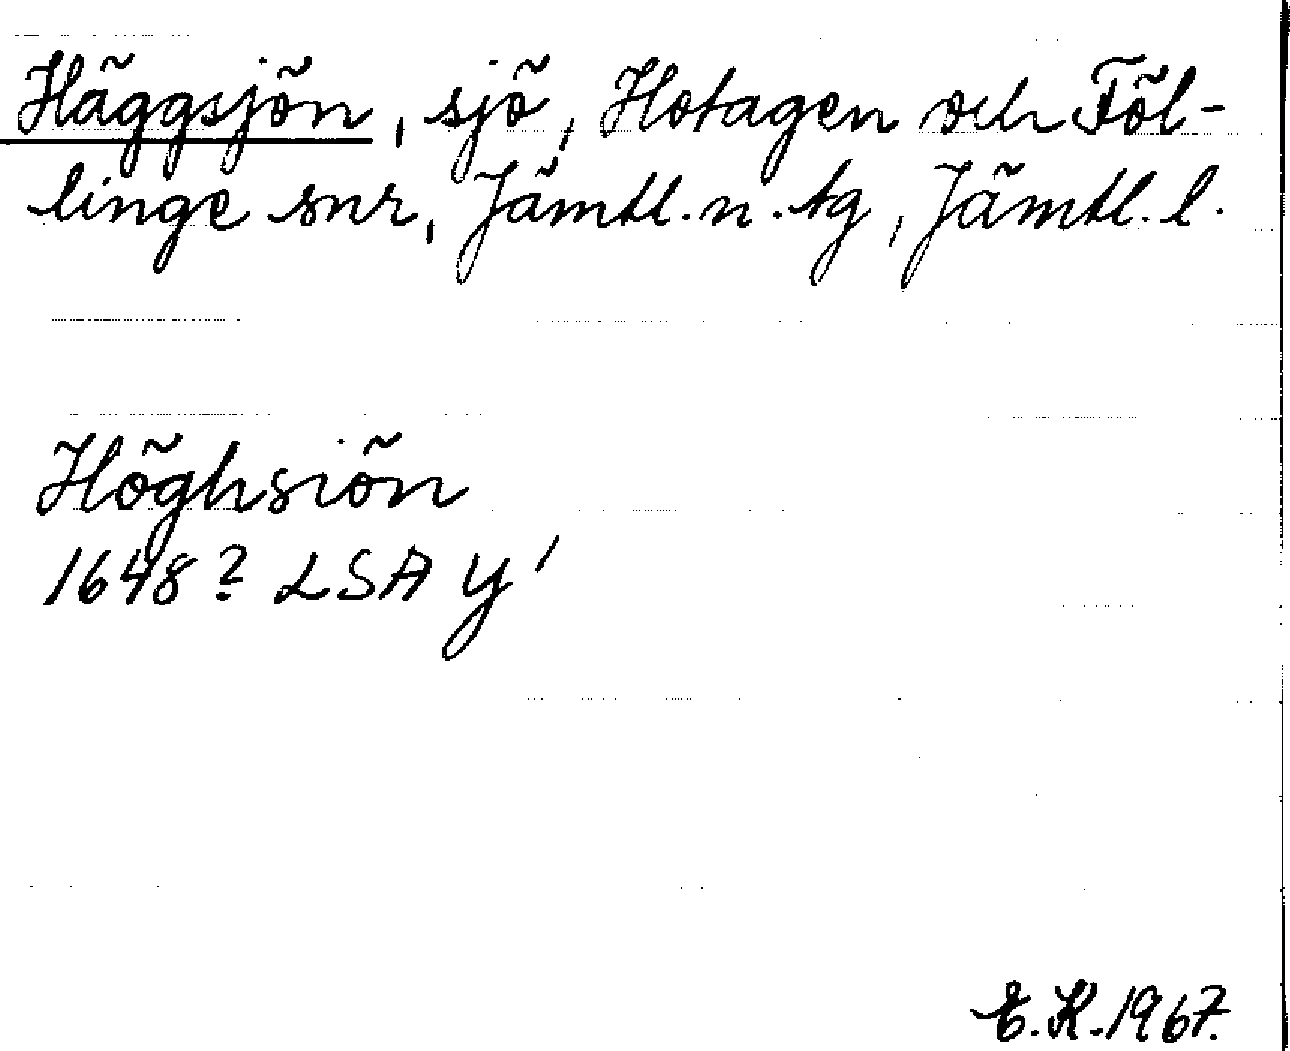 Häggsjön, sjö, Hotagen och Föl-
linge snr, Jämtl. n. tg, Jämtl. l.
Höghsiön
1648? LSA Y'
E.K. 1967.